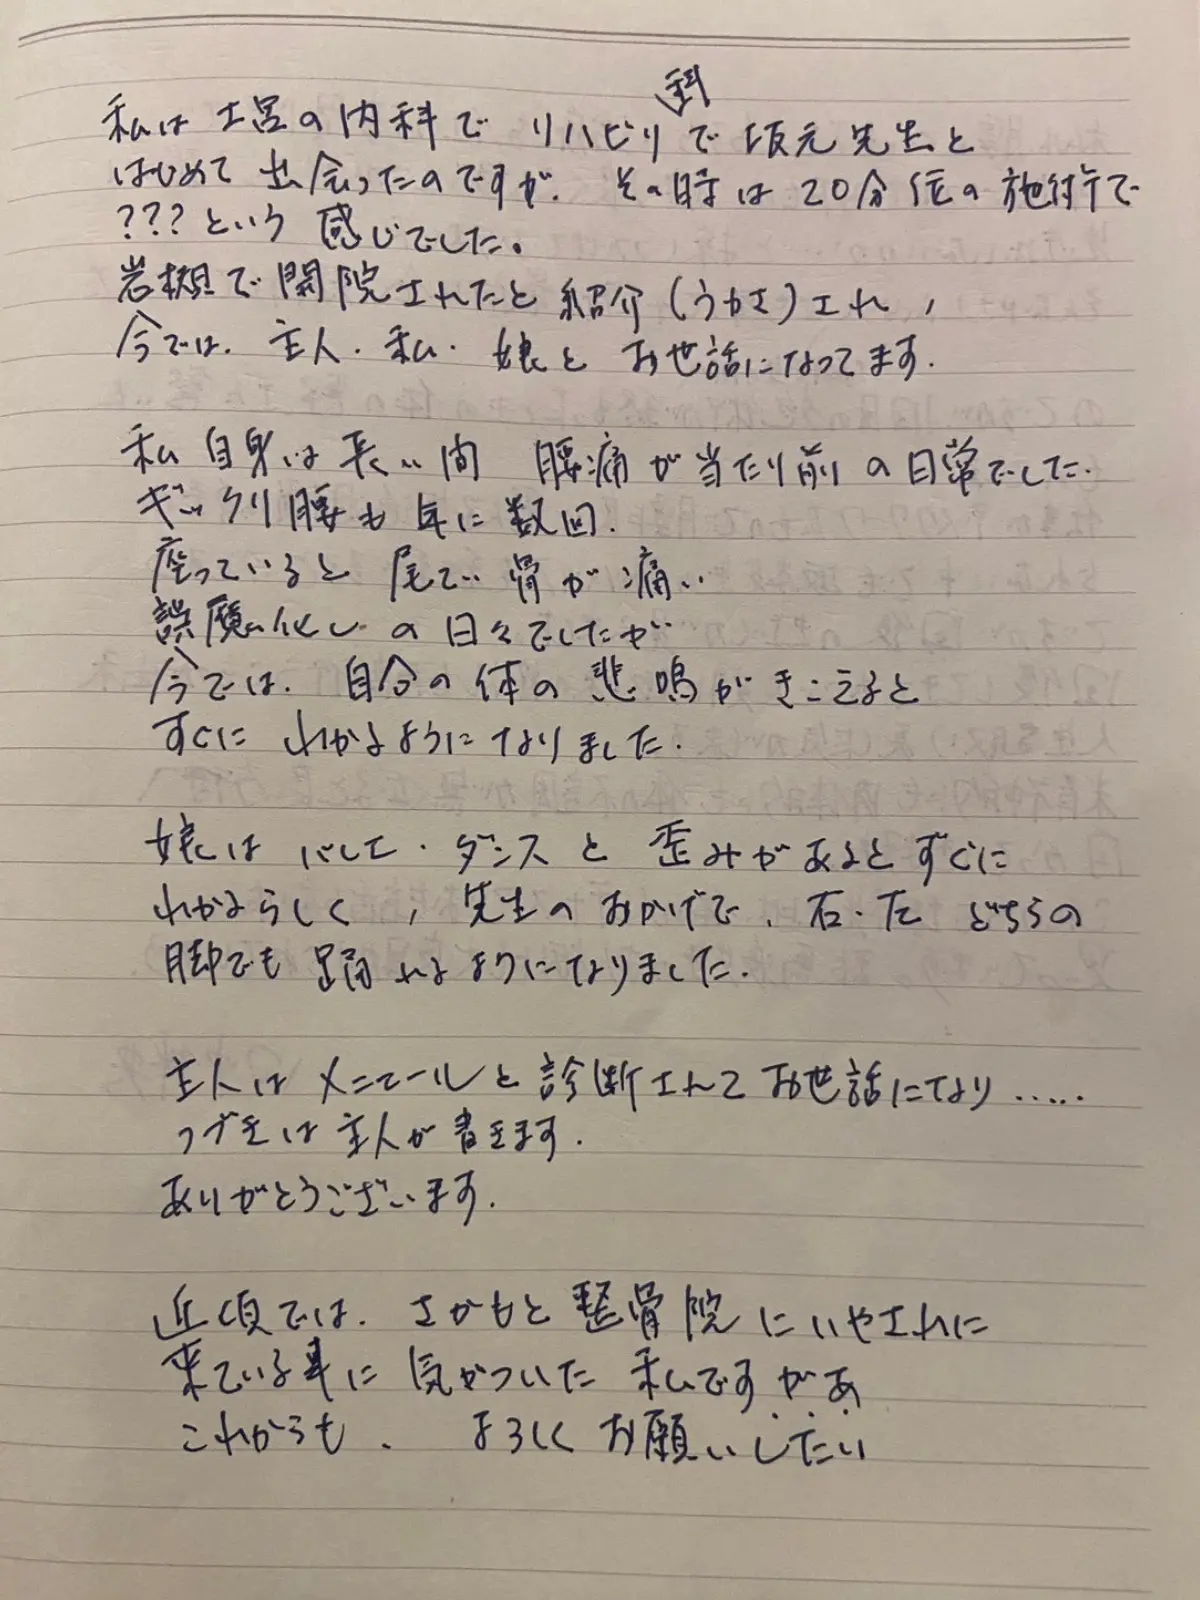 私は土呂の内科でリハビリ科で坂元先生と
はじめて出会ったのですが、その時は20分位の施術で
???という感じでした。
岩槻で開院されたと紹介(うわさ)され,
今では、主人・私・娘とお世話になってます.
私自身は長い間 腰痛が当たり前の日常でした.
ギックリ腰も年に数回.
座っていると尾てい骨が痛い
誤魔化しの日々でしたが
今では、自分の体の悲鳴がきこえると
すぐにわかるようになりました.
娘はバレエ・ダンスと歪みがあるとすぐに
わかるらしく,先生のおかげで、右・左どちらの
脚でも踊れるようになりました.
主人はメニエールと診断されてお世話になり.....
つづきは主人が書きます.
ありがとうございます.
近頃では、さかもと整骨院にいやされに
来ている事に気がついた私ですがあ
これからも、よろしくお願いしたい